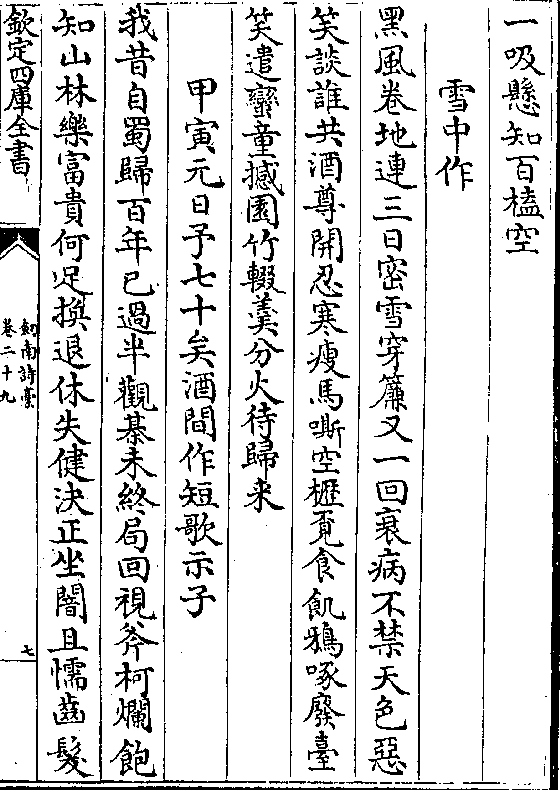 一吸懸知百榼空
雪中作
黑風卷地連三日密雪穿簾又一回衰病不禁天色惡
笑談誰共酒尊開忍寒瘦馬嘶空櫪覔食飢鴉啄廢臺
笑遣蠻童撼園竹輟羮分火待歸来
甲寅元日予七十矣酒間作短歌示子
我昔自蜀歸百年已過半觀棊未終局回視斧柯爛飽
知山林樂富貴何足換退休失健決正坐闇且懦齒髮
欽定四庫全書
劒南詩稾
卷二十九
七